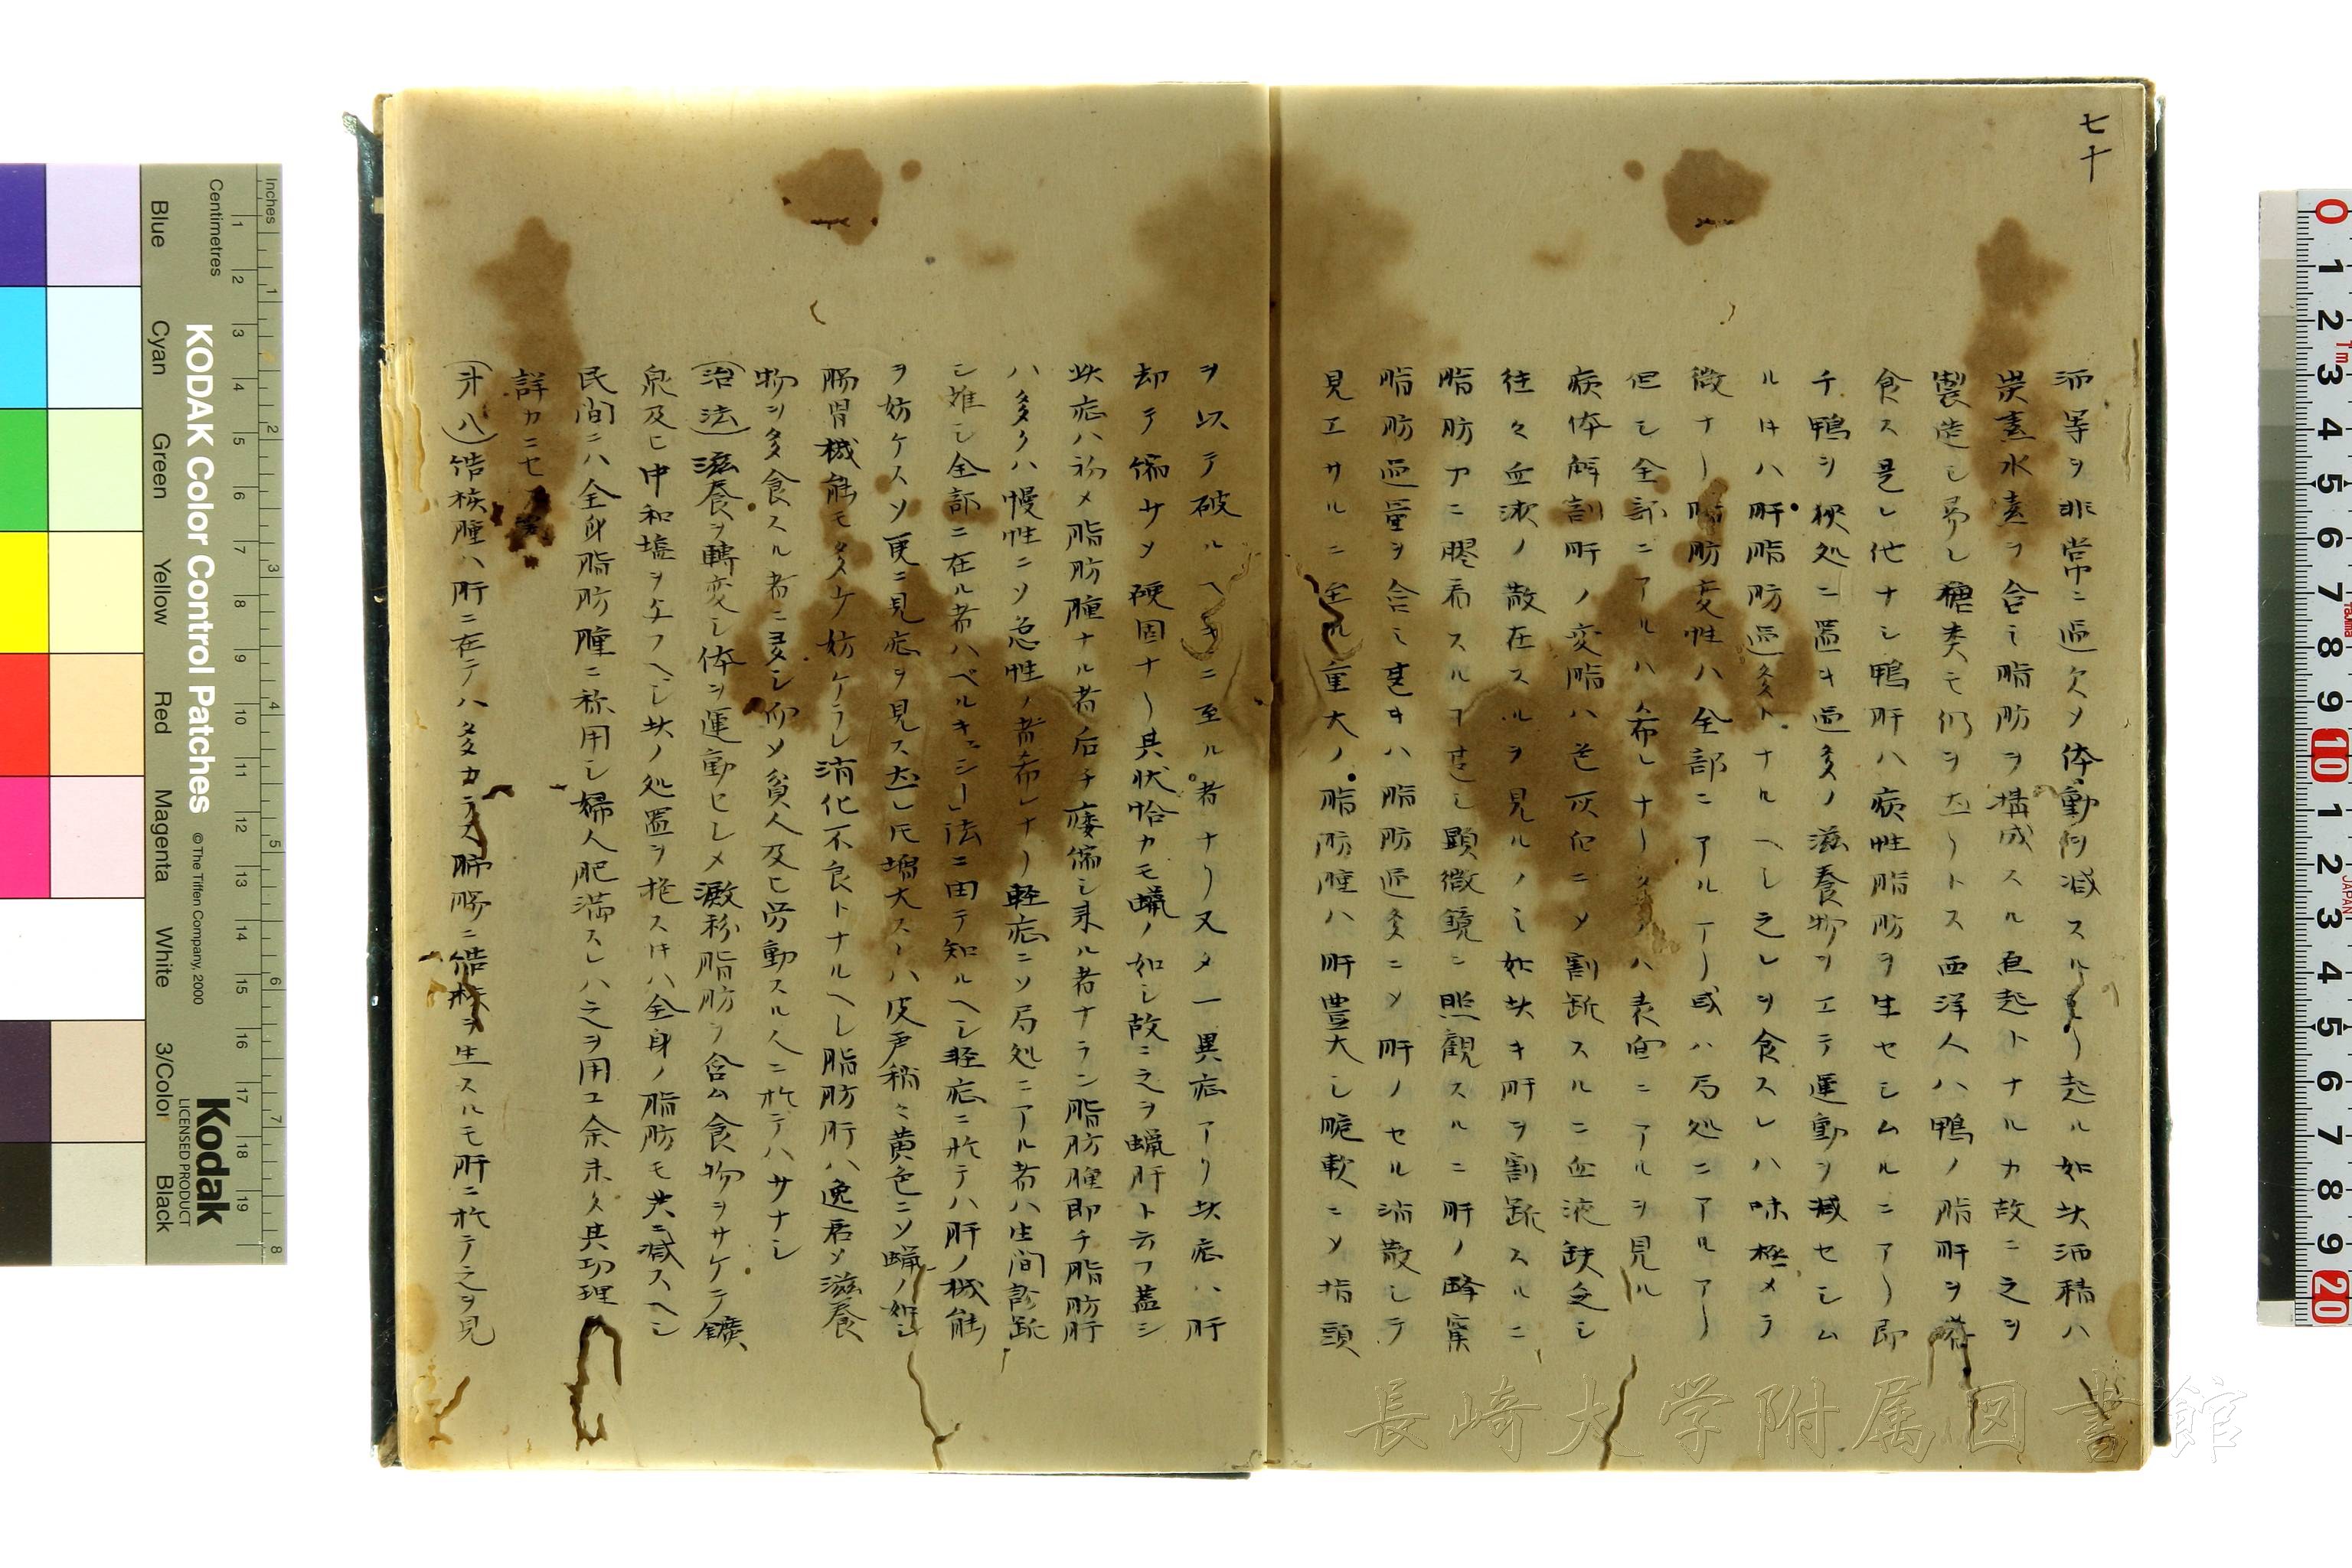 七十
沛等ヲ非常ニ過欠ソ体動何減スルヨリ起ル如此沛稱ハ
炭素水素ヲ合シ脂肪ヲ構成スル起トナルカ故ニ之ヲ
製造シ易シ糖类モ仍ヲ然リトス西洋人ハ鴨ノ脂肝ヲ
食ス是レ他ナシ鴨肝ハ病性脂肪ヲ生セシムルニアリ即
チ鴨ヲ狹処ニ置キ過多ノ滋養物ヲエテ運動ヲ減セシム
ル時ハ肝脂肪過多トナルヘシ之レヲ食スレハ味極メテ
微ナリ脂肪変性ハ全部ニアルアリ或ハ局処ニアルアリ
但シ全部ニアルハ希レナリ多クハ表面ニアルヲ見ル
病体解割肝ノ変脂ハ色灰白ニソ割断スルニ血液缺乏シ
往々血液ノ散在スルヲ見ルノミ如此キ肝ヲ割断スルニ
脂肪刀ニ膠着スルヿ甚シ顕微鏡ニ照観スルニ肝ノ蜂窠
脂肪過量ヲ含ミ甚キハ脂肪過多ニソ肝ノセル消散シテ
見エサルニ至ル重大ノ脂肪腫ハ肝豊大シ脆軟ニソ指頭
ヲ以テ破ルヘキニ至ル者ナリ又タ一異症アリ此症ハ肝
却テ縮サソ硬固ナリ其状恰カモ蝋ノ如シ故ニ之ヲ蝋肝ト云フ蓋シ
此症ハ初メ脂肪腫ナル者后チ痿縮シ来ル者ナラン脂肪腫即チ脂肪肝
ハ多クハ慢性ニソ急性ノ者希レナリ軽症ニソ局処ニアル者ハ生間診断
シ難シ全部ニ在ル者ハペルキュシー法ニ由テ知ルヘシ軽症ニ於テハ肝ノ機能
ヲ妨ケスソ更ニ見症ヲ見ス然レ𪜈増大スレハ皮声稍々黄色ニソ蝋ノ如シ
腸胃機能モ多ケ妨ケラレ消化不良トナルヘシ脂肪肝ハ逸居ソ滋養
物ヲ多食スル者ニ多シ仰ソ貧人及ヒ労動スル人ニ於テハサナシ
(治法)滋養ヲ轉変シ体ヲ運動セシメ澱粉脂肪ヲ含ム食物ヲサケテ鑛
泉及ヒ中和塩ヲ与フヘシ此ノ処置ヲ施ス時ハ全身ノ脂肪モ共ニ減スヘシ
民間ニハ全身脂肪腫ニ称用シ婦人肥満スレハ之ヲ用ユ余未タ其功理
詳カニセス
(第八)結核腫ハ肝ニ在テハ多カラス肺腸ニ結核ヲ生スルモ肝ニ於テ之ヲ見
KODAK Color Control Patches
© The Tiffen Company, 2000
Kodak
LICENSED PRODUCT
Inches
Centimetres
Blue
Cyan
Green
Yellow
Red
Magenta
White
3/Color
Black
JAPAN
長崎大学附属図書館